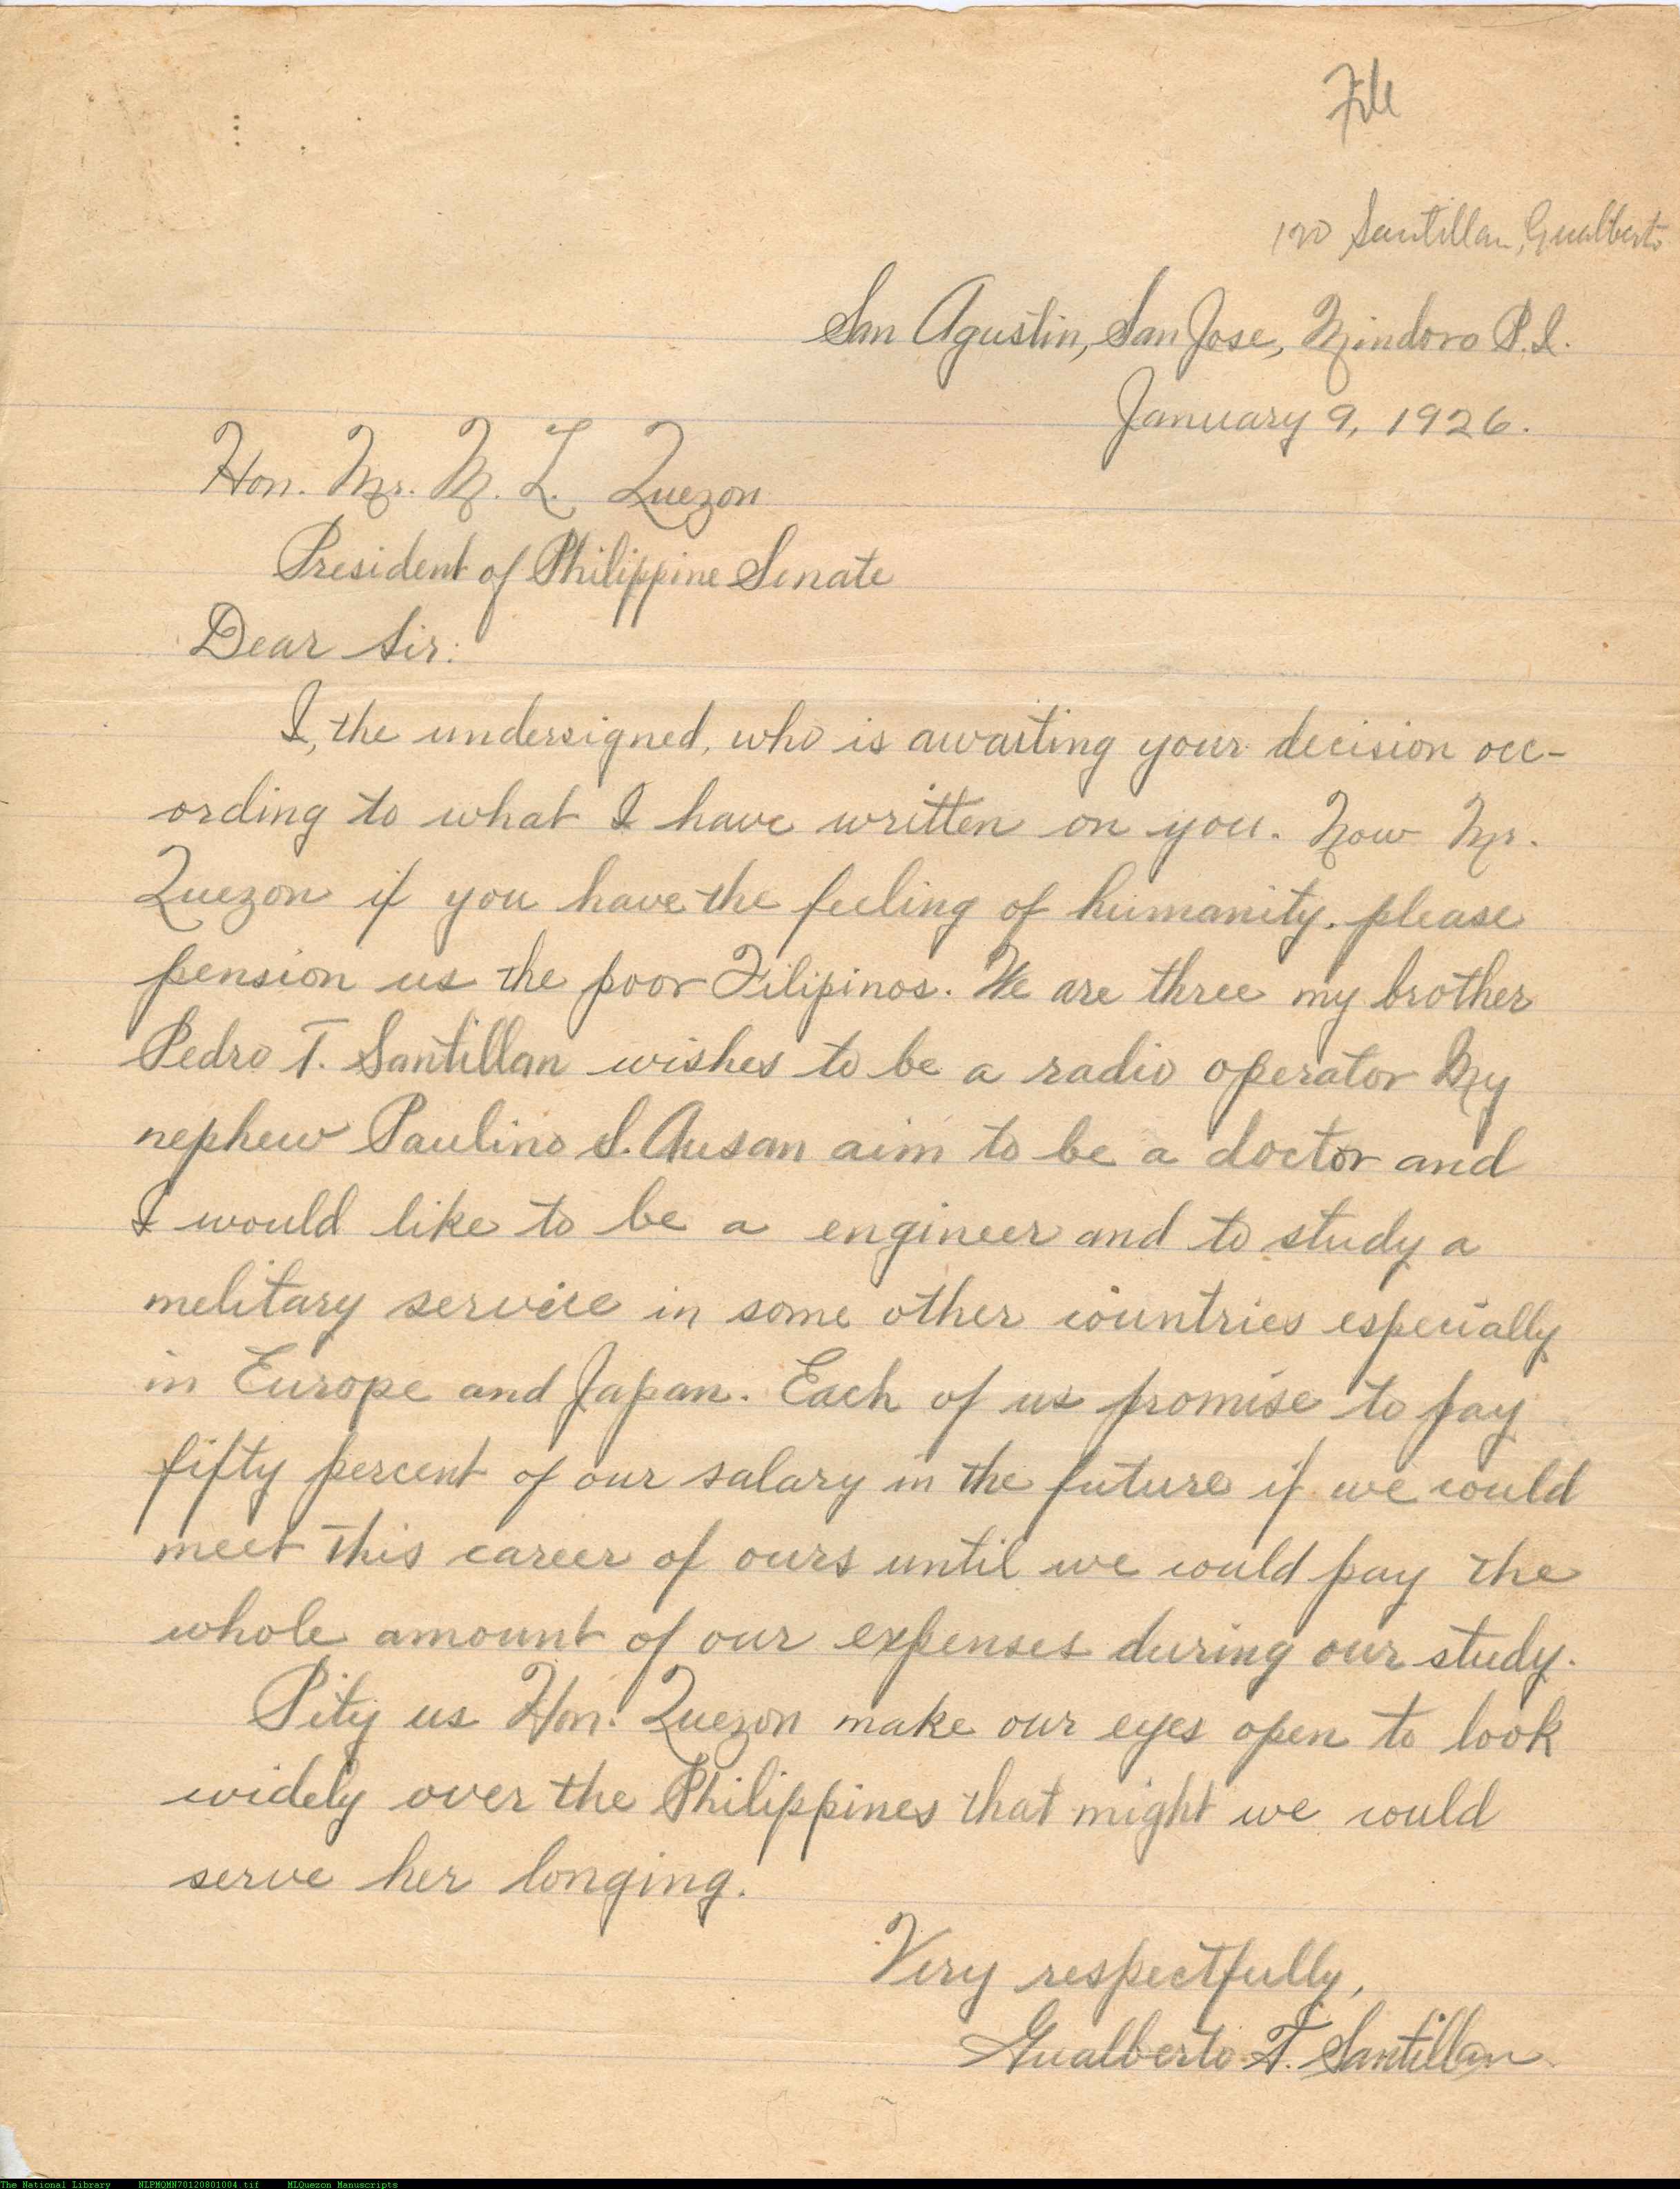 File
120 Santillan, Gualberto
San Agustin, San Jose, Mindoro P.I.
January 9, 1926.
Hon. Mr. M. L. Quezon
President of Philippine Senate
Dear Sir:
I, the undersigned, who is awaiting your decision occ-
ording to what I have written on you. Now Mr.
Quezon if you have the feeling of humanity. please
pension us the poor Filipinos. We are three my brother
Pedro T. Santillan wishes to be a radio operator My
nephew Paulino S. Ausan aim to be a doctor and
I would like to be a engineer and to study a
melitary service in some other countries especially
in Europe and Japan. Each of us promise to pay
fifty percent of our salary in the future if we could
meet this career of ours until we could pay the
whole amount of our expenses during our study.
Pity us Hon. Quezon make our eyes open to look
widely over the Philippines that might we could
serve her longing.
Very respectfully,
Gualberto T. Santillan
The National Library NLPMQMN70120801004.tif MLQuezon Manuscripts